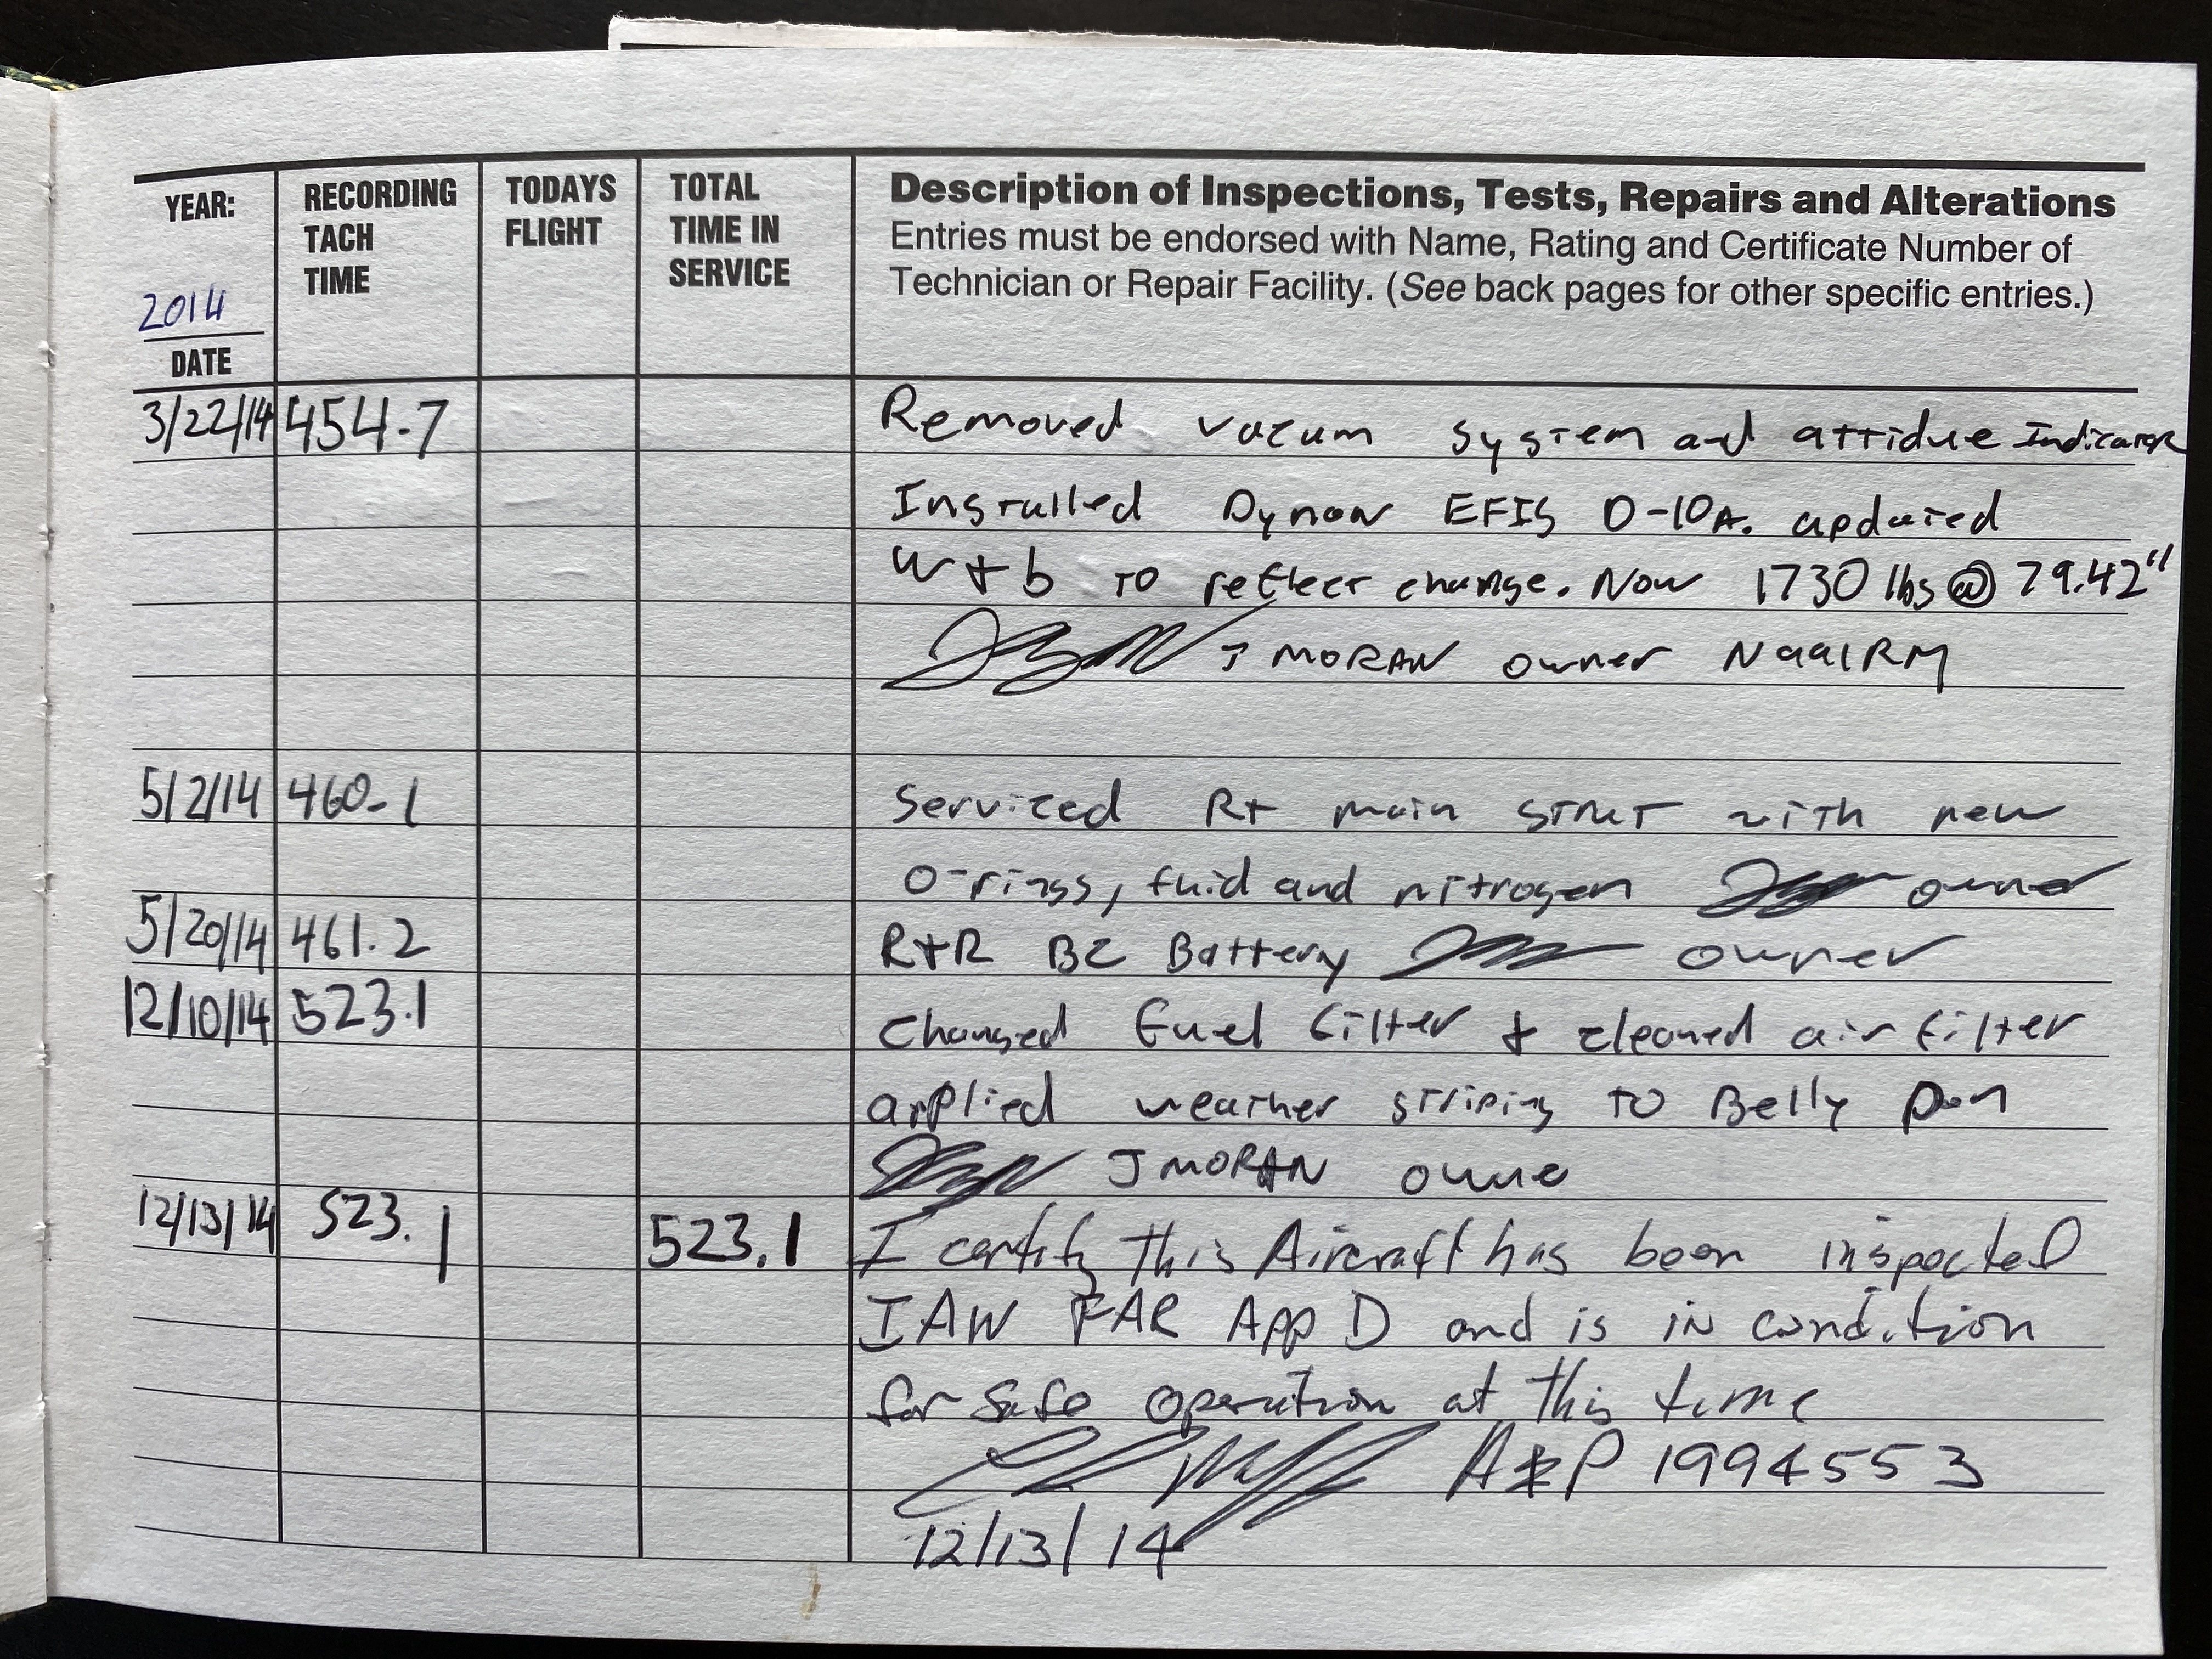 YEAR: RECORDING TACH TIME TODAYS FLIGHT TOTAL TIME IN SERVICE
Description of Inspections, Tests, Repairs and Alterations
Entries must be endorsed with Name, Rating and Certificate Number of
Technician or Repair Facility. (See back pages for other specific entries.)
2014
DATE
3/22/14 454.7 Removed vacum system and attidue Indicator
Installed Dynon EFIS D-10A. updated
W+b to reflect change. Now 1730 lbs @ 79.42"
J MORAN owner N991RM
5/2/14 460.1 Serviced Rt main strut with new
O-rings, fluid and nitrogen owner
5/20/14 461.2 R+R BC Battery owner
12/10/14 523.1 Changed fuel filter & cleaned air filter
applied weather striping to Belly pan
J MORAN owne
12/13/14 523.1 523.1 I certify this Aircraft has been inspected
IAW FAR App D and is in condition
for safe operation at this time
A&P 1994553
12/13/14